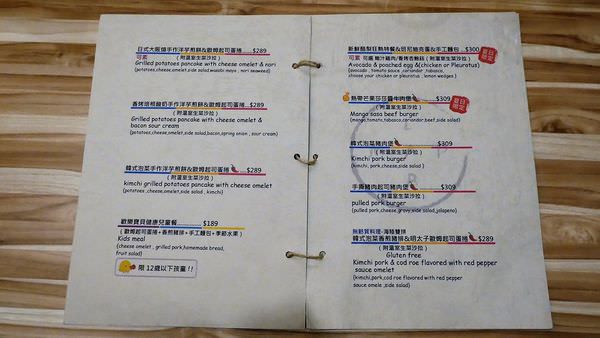 日式大阪燒手作洋芋煎餅&歐姆起司蛋捲.....$289
可素 (附溫室生菜沙拉)
Grilled potatoes pancake with cheese omelet & nori
(potatoes,cheese,omelet,side salad,wasabi mayo , nori seaweed)
香烤培根酸奶手作洋芋煎餅&歐姆起司蛋捲..$289
(附溫室生菜沙拉)
Grilled potatoes pancake with cheese omelet &
bacon sour cream
(potatoes,cheese,omelet,side salad,bacon,spring onion , sour cream)
韓式泡菜手作洋芋煎餅&歐姆起司蛋捲 ...... $289
(附溫室生菜沙拉)
kimchi grilled potatoes pancake with cheese omelet
(potatoes ,cheese,omelet,side salad , kimchi)
歡樂寶貝健康兒童餐............ $189
(歐姆起司蛋捲+香煎雞排+手工麵包+季節水果)
Kids meal
(cheese omelet , grilled pork,homemade bread,
fruit salad)
限 12歲以下孩童 !!
新鮮酪梨狂熱特餐&班尼迪克蛋&手工麵包...$300
可素
Avocado & poached egg &(chicken or Pleurotus)
(avocado , tomato sauce ,coriander , tabasco,
choose your chicken or pleurotus , lemon wedges )
夏日限定
熱帶芒果莎莎醬牛肉堡 ..........$309
(附溫室生菜沙拉)
夏日限定
Mango sasa beef burger
(mango,tomato,tabasco,coriander,beef,side salad)
韓式泡菜豬肉堡 ............... $309
(附溫室生菜沙拉)
Kimchi pork burger
( kimchi,pork,cheese,side salad)
手撕豬肉起司豬肉堡 ............. $309
(附溫室生菜沙拉)
pulled pork burger
(pulled pork,cheese,gravy,side salad,jalapeno)
無麩質料理-海陸雙拼
韓式泡菜香煎豬排&明太子歐姆起司蛋捲 $289
(附溫室生菜沙拉)
Gluten free
Kimchi pork & cod roe flavored with red pepper
sauce omelet
(kimchi,pork,cod roe flavored with red pepper
sauce omele ,side salad)